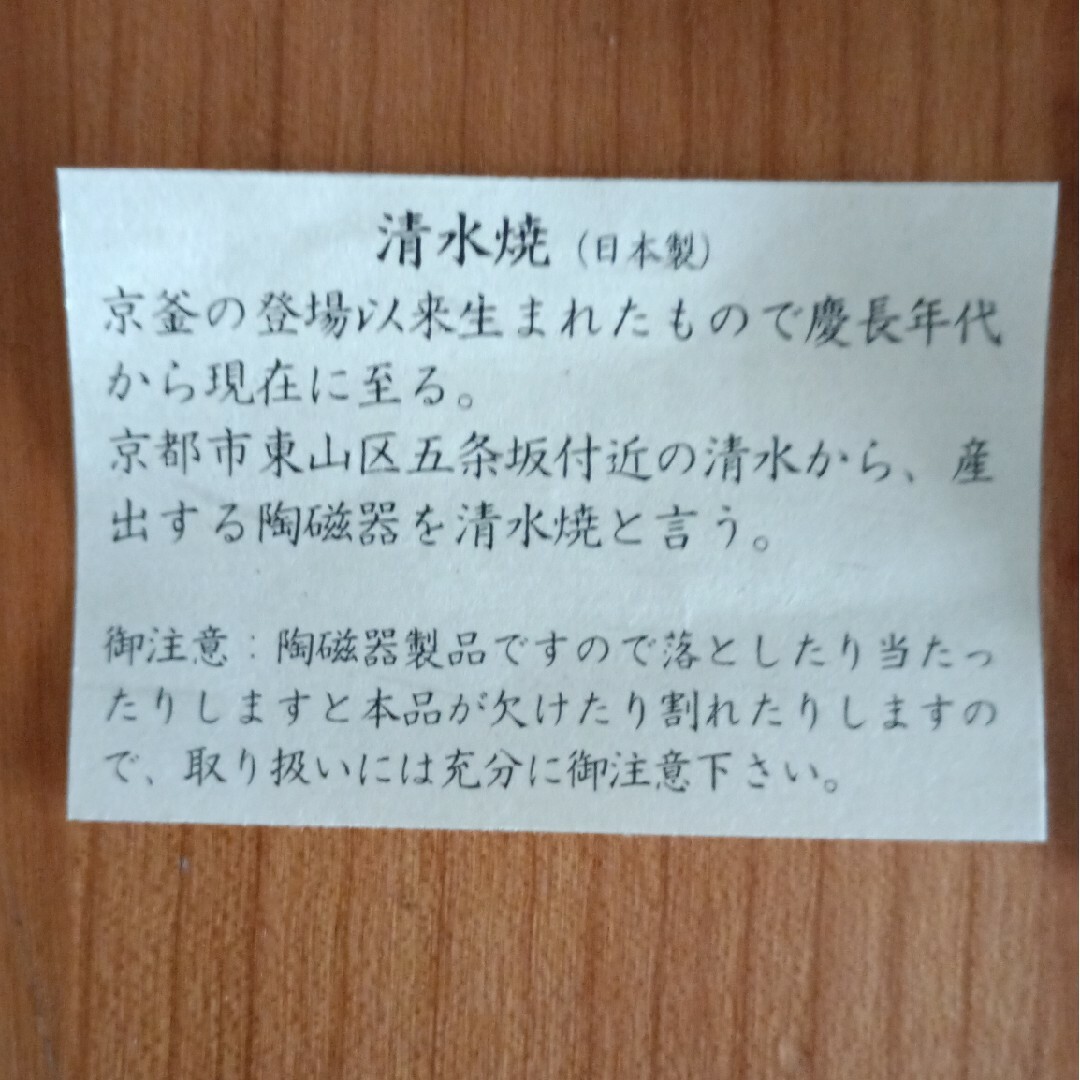 清水焼（日本製）
京釜の登場以来生まれたもので慶長年代
から現在に至る。
京都市東山区五条坂付近の清水から、産
出する陶磁器を清水焼と言う。
御注意：陶磁器製品ですので落としたり当たっ
たりしますと本品が欠けたり割れたりしますの
で、取り扱いには充分に御注意下さい。